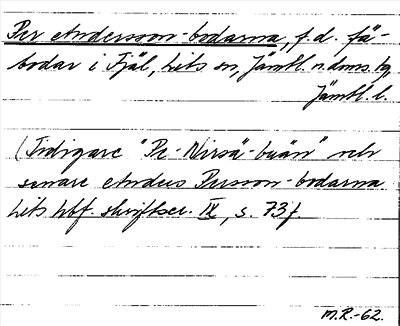 Per Andersson-bodarna, f.d. fä-
bodar i Fjäl, Lits sn, Jämtl. n. doms. tg
Jämtl. l.
(Tidigare "Pe-Nirsä-buän" och
senare Anders Persson-bodarna
Lits hbf. skriftser. IX, s. 73 f.
M.R.-62.